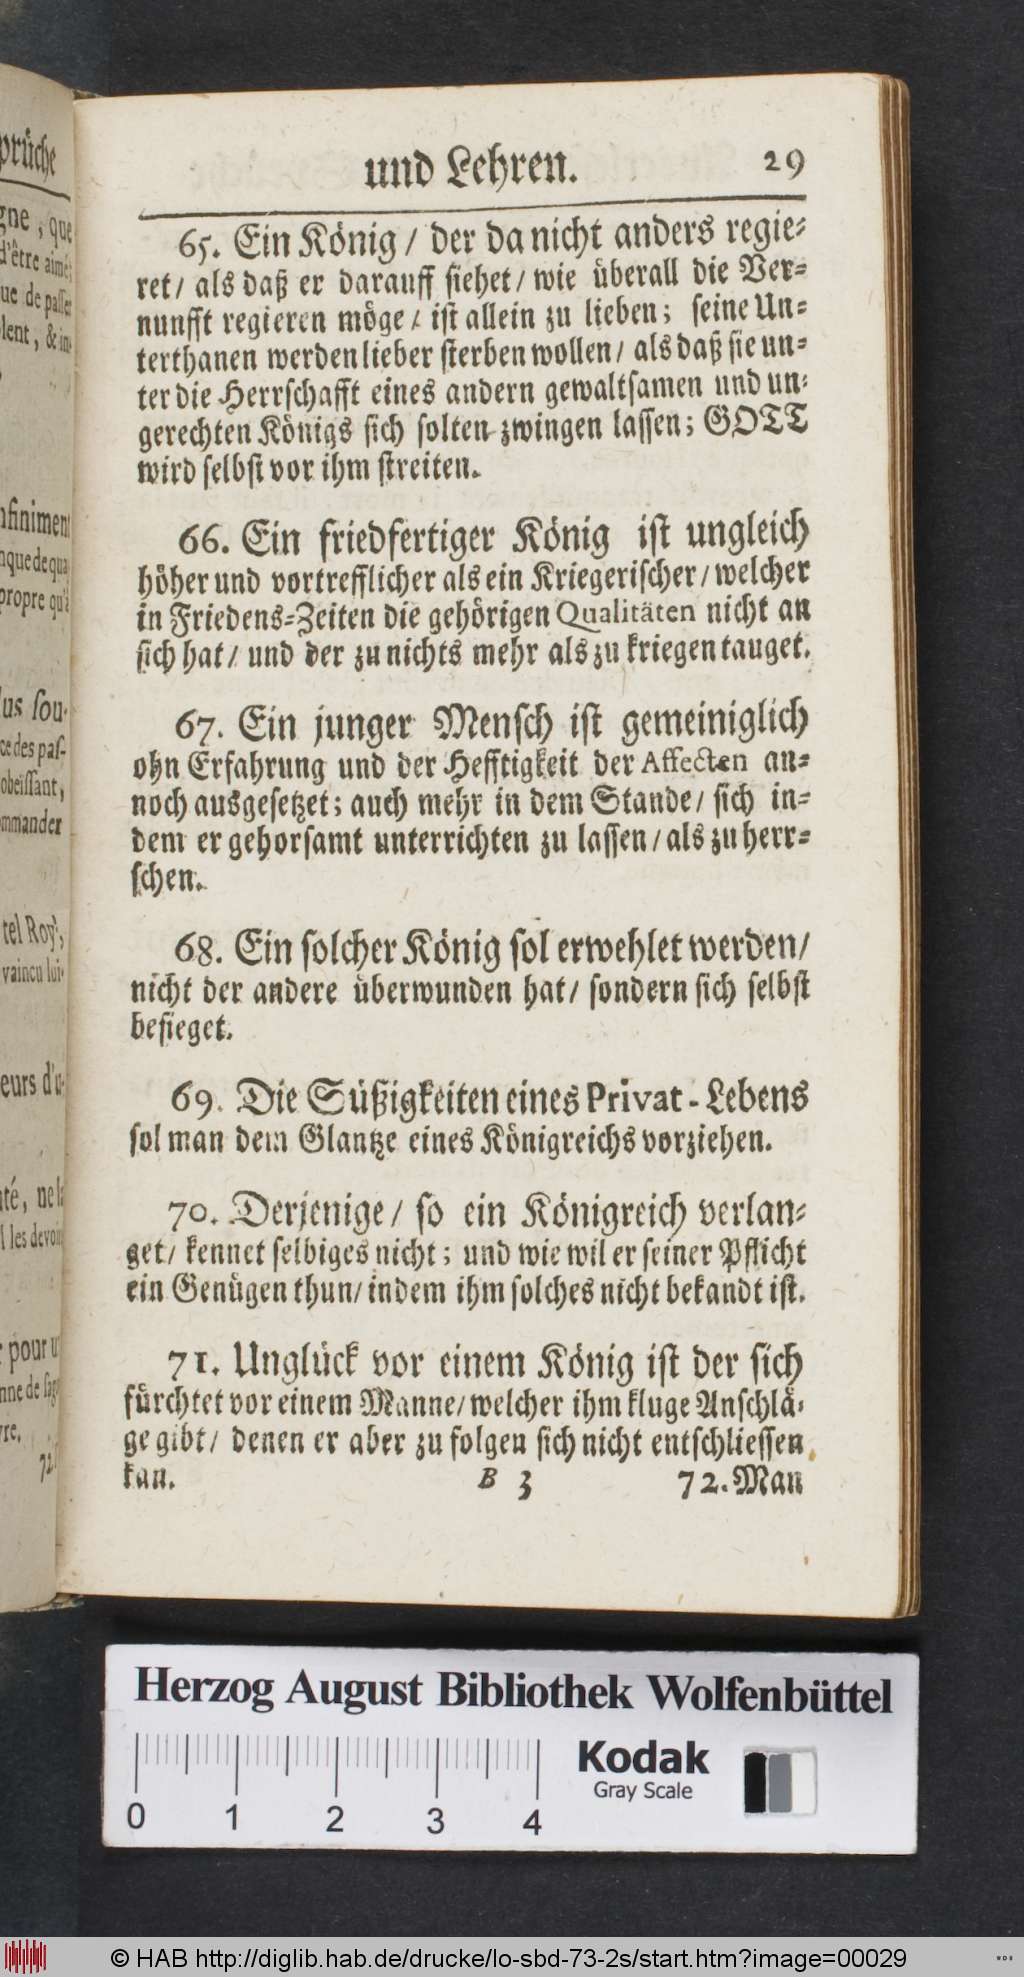 prüche
gne, que
d'être aimé;
que de passer
lent, & in-
nfiniment
nque de qua-
propre qu'à
lus sou-
ce des pas-
obeïssant,
ommander
tel Roy,
vaincu lui-
eurs d'u-
nté, ne la
l les devoirs
pour u
nne de sage
vre.
72.
und Lehren. 29
65. Ein König / der da nicht anders regie-
ret / als daß er darauff siehet / wie überall die Ver-
nunfft regieren möge / ist allein zu lieben; seine Un-
terthanen werden lieber sterben wollen / als daß sie un-
ter die Herrschafft eines andern gewaltsamen und un-
gerechten Königs sich solten zwingen lassen; GOTT
wird selbst vor ihm streiten.
66. Ein friedfertiger König ist ungleich
höher und vortrefflicher als ein Kriegerischer / welcher
in Friedens-Zeiten die gehörigen Qualitäten nicht an
sich hat / und der zu nichts mehr als zu kriegen tauget.
67. Ein junger Mensch ist gemeiniglich
ohn Erfahrung und der Hefftigkeit der Affecten an-
noch ausgesetzet; auch mehr in dem Stande / sich in-
dem er gehorsamt unterrichten zu lassen / als zu herr-
schen.
68. Ein solcher König sol erwehlet werden /
nicht der andere überwunden hat / sondern sich selbst
besieget.
69. Die Süßigkeiten eines Privat-Lebens
sol man dem Glantze eines Königreichs vorziehen.
70. Derjenige / so ein Königreich verlan-
get / kennet selbiges nicht; und wie wil er seiner Pflicht
ein Genügen thun / indem ihm solches nicht bekandt ist.
71. Unglück vor einem König ist der sich
fürchtet vor einem Manne / welcher ihm kluge Anschlä-
ge gibt / denen er aber zu folgen sich nicht entschliessen
kan. B 3 72. Man
Herzog August Bibliothek Wolfenbüttel
Kodak
Gray Scale
0 1 2 3 4
© HAB http://diglib.hab.de/drucke/lo-sbd-73-2s/start.htm?image=00029